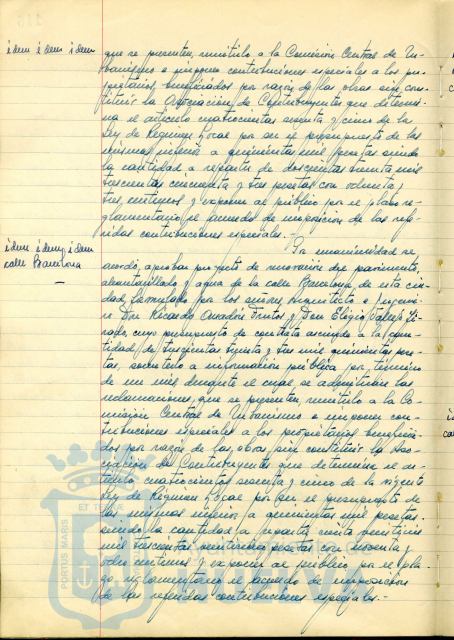 idem idem idem
que se presenten, remitirlo a la Comisión Central de Ur-
banismo e imponer contribuciones especiales a los pro-
pietarios beneficiados por razón de las obras sin cons-
tituir la Asociación de Contribuyentes que determi-
na el artículo cuatrocientos sesenta y cinco de la
Ley de Régimen Local por ser el presupuesto de las
mismas inferior a quinientas mil pesetas siendo
la cantidad a repartir de doscientas treinta mil
trescientas cincuenta y tres pesetas con ochenta y
tres céntimos y exponer al público por el plazo re-
glamentario el acuerdo de imposición de las refe-
ridas contribuciones especiales.-
idem idem idem
calle Barcelona
Por unanimidad se
acordó, aprobar proyecto de renovación de pavimento,
alcantarillado y agua de la calle Barcelona, de esta ciu-
dad, formulado por los señores Arquitecto e Ingenie-
ro Don Ricardo Anadón Frutos y Don Eligio
cuyo presupuesto de contrata asciende a la can-
tidad de trescientas treinta y tres mil quinientas pese-
tas, someterlo a información pública por término
de un mes durante el cual se admitirán las
reclamaciones que se presenten, remitirlo a la Co-
misión Central de Urbanismo e imponer con-
tribuciones especiales a los propietarios beneficia-
dos por razón de las obras, sin constituir la Aso-
ciación de Contribuyentes que determina el ar-
tículo cuatrocientos sesenta y cinco de la vigente
Ley de Régimen Local por ser el presupuesto de
las mismas inferior a quinientas mil pesetas.
siendo la cantidad a repartir
mil trescientas pesetas con noventa y
ocho céntimos y exponer al público por el pla-
zo reglamentario el acuerdo de imposición
de las referidas contribuciones especiales.-
PORTUS MARIS
ET TERRAE